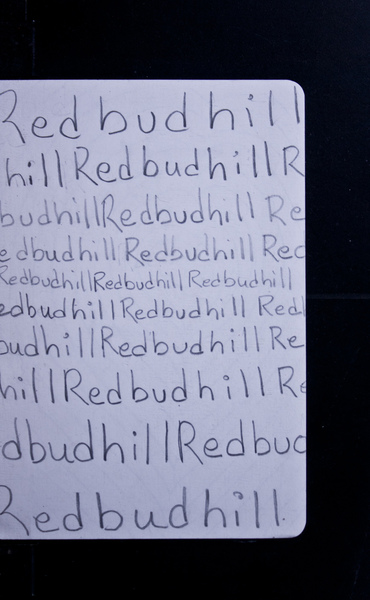 Redbudhill
hillRedbudhillR
budhillRedbudhill Re
edbudhillRedbudhill Red
RedbudhillRedbudhillRedbudhill
edbudhillRedbudhill Red
budhillRedbudhill Re
hillRedbudhill Re
dbudhillRedbud
Redbudhill